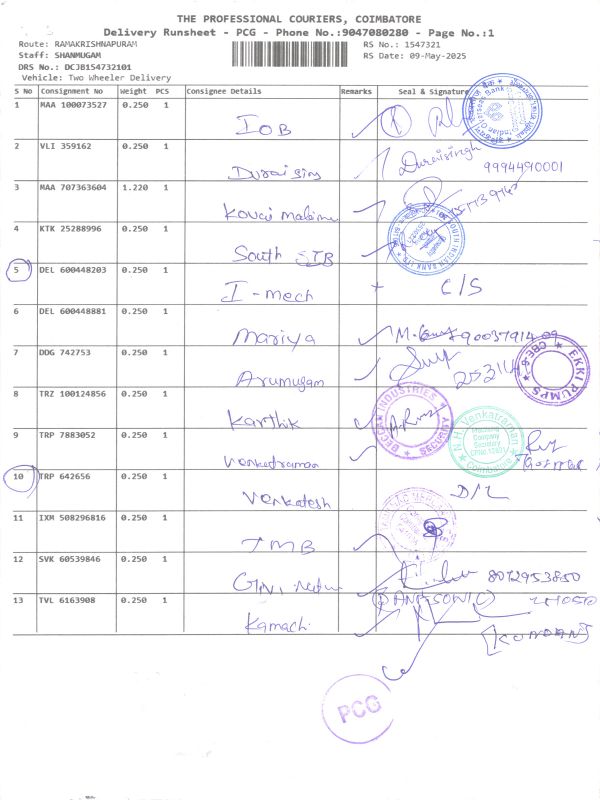 THE PROFESSIONAL COURIERS, COIMBATORE
Delivery Runsheet - PCG - Phone No.:9047080280 - Page No.:1
Route: RAMAKRISHNAPURAM
RS No.: 1547321
Staff: SHANMUGAM
RS Date: 09-May-2025
DRS No.: DCJB154732101
Vehicle: Two Wheeler Delivery
S No Consignment No Weight PCS Consignee Details Remarks Seal & Signature
1 MAA 100073527 0.250 1 IOB
2 VLI 359162 0.250 1 Durai sing Duraisingh 9994490001
3 MAA 707363604 1.220 1 Kovai
4 KTK 25288996 0.250 1 South
5 DEL 600448203 0.250 1 I-mech C/S
6 DEL 600448881 0.250 1 Mariya
7 DDG 742753 0.250 1 Arumugam
EKKI PUMPS
8 TRZ 100124856 0.250 1 Karthik
DECCAN INDUSTRIES SECURITY
9 TRP 7883052 0.250 1 Venkatraman
N.H. Venkatraman
Company Secretary
Coimbatore
10 TRP 642656 0.250 1 Venkatesh D/L
11 IXM 508296816 0.250 1 TMB
12 SVK 60539846 0.250 1 8072953850
13 TVL 6163908 0.250 1 Kamachi
PCG